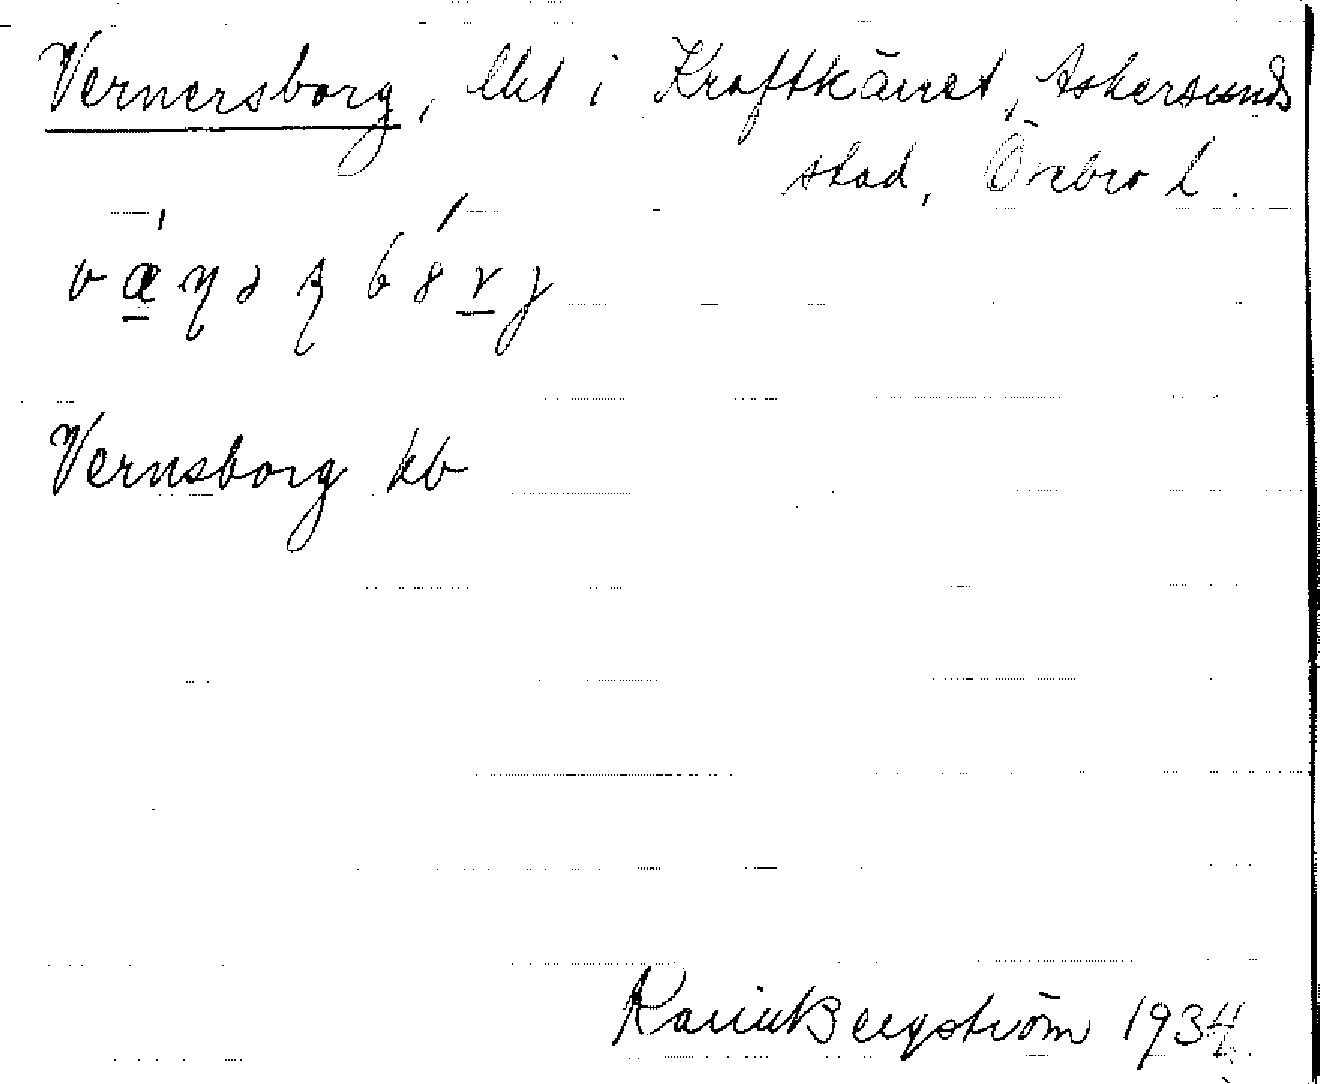 Vernersborg, lht i Kraftkärret, Askersunds
stad, Örebro l.
Vernsborg kb
Karin Bergström 1934